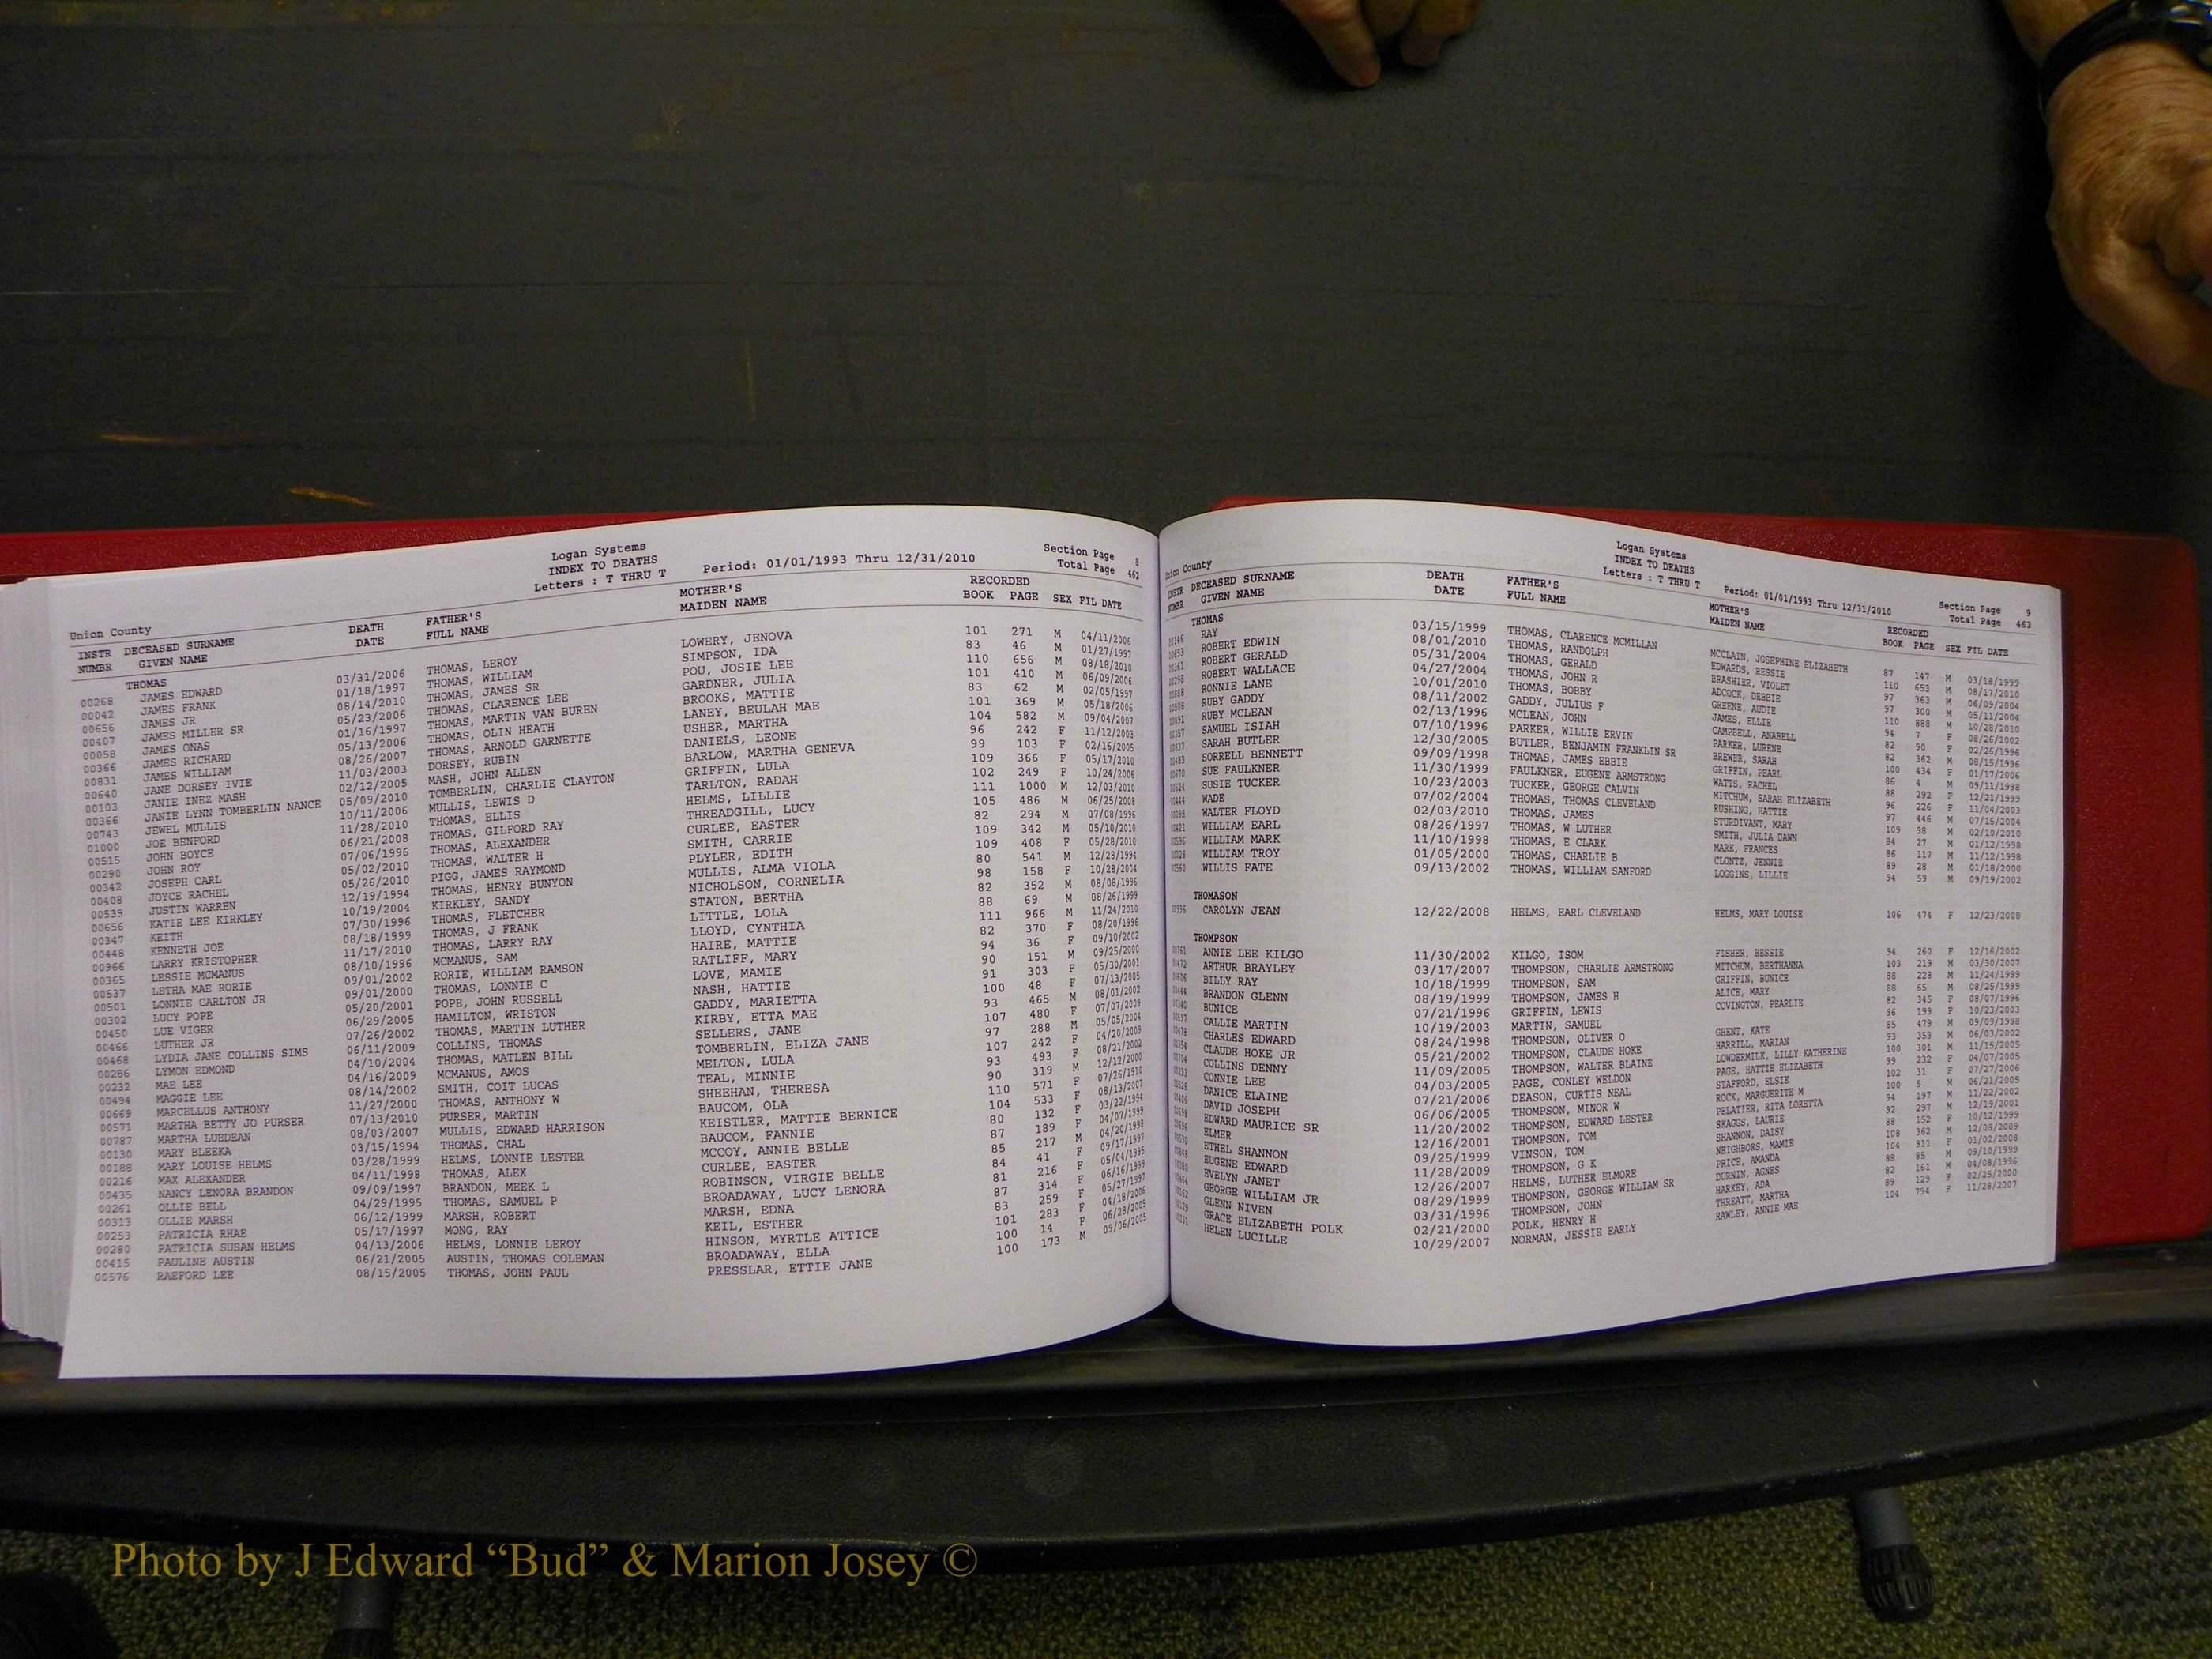 Logan Systems
INDEX TO DEATHS
Letters : T THRU T Period: 01/01/1993 Thru 12/31/2010
Section Page 8
Total Page 462
Union County
INSTR DECEASED SURNAME DEATH FATHER'S MOTHER'S RECORDED
NUMBR GIVEN NAME DATE FULL NAME MAIDEN NAME BOOK PAGE SEX FIL DATE
THOMAS
00268 JAMES EDWARD 03/31/2006 THOMAS, LEROY LOWERY, JENOVA 101 271 M 04/11/2006
00042 JAMES FRANK 01/18/1997 THOMAS, WILLIAM SIMPSON, IDA 83 46 M 01/27/1997
00656 JAMES JR 08/14/2010 THOMAS, JAMES SR POU, JOSIE LEE 110 656 M 08/18/2010
00407 JAMES MILLER SR 05/23/2006 THOMAS, CLARENCE LEE GARDNER, JULIA 101 410 M 06/09/2006
00058 JAMES ONAS 01/16/1997 THOMAS, MARTIN VAN BUREN BROOKS, MATTIE 83 62 M 02/05/1997
00366 JAMES RICHARD 05/13/2006 THOMAS, OLIN HEATH LANEY, BEULAH MAE 101 369 M 05/18/2006
00831 JAMES WILLIAM 08/26/2007 THOMAS, ARNOLD GARNETTE USHER, MARTHA 104 582 M 09/04/2007
00640 JANE DORSEY IVIE 11/03/2003 DORSEY, RUBIN DANIELS, LEONE 96 242 F 11/12/2003
00103 JANIE INEZ MASH 02/12/2005 MASH, JOHN ALLEN BARLOW, MARTHA GENEVA 99 103 F 02/16/2005
00366 JANIE LYNN TOMBERLIN NANCE 05/09/2010 TOMBERLIN, CHARLIE CLAYTON GRIFFIN, LULA 109 366 F 05/17/2010
00743 JEWEL MULLIS 10/11/2006 MULLIS, LEWIS D TARLTON, RADAH 102 249 F 10/24/2006
01000 JOE BENFORD 11/28/2010 THOMAS, ELLIS HELMS, LILLIE 111 1000 M 12/03/2010
00515 JOHN BOYCE 06/21/2008 THOMAS, GILFORD RAY THREADGILL, LUCY 105 486 M 06/25/2008
00290 JOHN ROY 07/06/1996 THOMAS, ALEXANDER CURLEE, EASTER 82 294 M 07/08/1996
00342 JOSEPH CARL 05/02/2010 THOMAS, WALTER H SMITH, CARRIE 109 342 M 05/10/2010
00408 JOYCE RACHEL 05/26/2010 PIGG, JAMES RAYMOND PLYLER, EDITH 109 408 F 05/28/2010
00539 JUSTIN WARREN 12/19/1994 THOMAS, HENRY BUNYON MULLIS, ALMA VIOLA 80 541 M 12/28/1994
00656 KATIE LEE KIRKLEY 10/19/2004 KIRKLEY, SANDY NICHOLSON, CORNELIA 98 158 F 10/28/2004
00347 KEITH 07/30/1996 THOMAS, FLETCHER STATON, BERTHA 82 352 M 08/08/1996
00448 KENNETH JOE 08/18/1999 THOMAS, J FRANK LITTLE, LOLA 88 69 M 08/26/1999
00966 LARRY KRISTOPHER 11/17/2010 THOMAS, LARRY RAY LLOYD, CYNTHIA 111 966 M 11/24/2010
00365 LESSIE MCMANUS 08/10/1996 MCMANUS, SAM HAIRE, MATTIE 82 370 F 08/20/1996
00537 LETHA MAE RORIE 09/01/2002 RORIE, WILLIAM RAMSON RATLIFF, MARY 94 36 F 09/10/2002
00501 LONNIE CARLTON JR 09/01/2000 THOMAS, LONNIE C LOVE, MAMIE 90 151 M 09/25/2000
00302 LUCY POPE 05/20/2001 POPE, JOHN RUSSELL NASH, HATTIE 91 303 F 05/30/2001
00450 LUE VIGER 06/29/2005 HAMILTON, WRISTON GADDY, MARIETTA 100 48 F 07/13/2005
00466 LUTHER JR 07/26/2002 THOMAS, MARTIN LUTHER KIRBY, ETTA MAE 93 465 M 08/01/2002
00468 LYDIA JANE COLLINS SIMS 06/11/2009 COLLINS, THOMAS SELLERS, JANE 107 480 F 07/07/2009
00286 LYMON EDMOND 04/10/2004 THOMAS, MATLEN BILL TOMBERLIN, ELIZA JANE 97 288 M 05/05/2004
00232 MAE LEE 04/16/2009 MCMANUS, AMOS MELTON, LULA 107 242 F 04/20/2009
00494 MAGGIE LEE 08/14/2002 SMITH, COIT LUCAS TEAL, MINNIE 93 493 F 08/21/2002
00669 MARCELLUS ANTHONY 11/27/2000 THOMAS, ANTHONY W SHEEHAN, THERESA 90 319 M 12/12/2000
00571 MARTHA BETTY JO PURSER 07/13/2010 PURSER, MARTIN BAUCOM, OLA 110 571 F 07/26/1910
00787 MARTHA LUEDEAN 08/03/2007 MULLIS, EDWARD HARRISON KEISTLER, MATTIE BERNICE 104 533 F 08/13/2007
00130 MARY BLEEKA 03/15/1994 THOMAS, CHAL BAUCOM, FANNIE 80 132 F 03/22/1994
00188 MARY LOUISE HELMS 03/28/1999 HELMS, LONNIE LESTER MCCOY, ANNIE BELLE 87 189 F 04/07/1999
00216 MAX ALEXANDER 04/11/1998 THOMAS, ALEX CURLEE, EASTER 85 217 M 04/20/1998
00435 NANCY LENORA BRANDON 09/09/1997 BRANDON, MEEK L ROBINSON, VIRGIE BELLE 84 41 F 09/17/1997
00261 OLLIE BELL 04/29/1995 THOMAS, SAMUEL P BROADAWAY, LUCY LENORA 81 216 F 05/04/1995
00313 OLLIE MARSH 06/12/1999 MARSH, ROBERT MARSH, EDNA 87 314 F 06/16/1999
00253 PATRICIA RHAE 05/17/1997 MONG, RAY KEIL, ESTHER 83 259 F 05/27/1997
00280 PATRICIA SUSAN HELMS 04/13/2006 HELMS, LONNIE LEROY HINSON, MYRTLE ATTICE 101 283 F 04/18/2006
00415 PAULINE AUSTIN 06/21/2005 AUSTIN, THOMAS COLEMAN BROADAWAY, ELLA 100 14 F 06/28/2005
00576 RAEFORD LEE 08/15/2005 THOMAS, JOHN PAUL PRESSLAR, ETTIE JANE 100 173 M 09/06/2005
Logan Systems
INDEX TO DEATHS
Letters : T THRU T Period: 01/01/1993 Thru 12/31/2010
Section Page 9
Total Page 463
Union County
INSTR DECEASED SURNAME DEATH FATHER'S MOTHER'S RECORDED
NUMBR GIVEN NAME DATE FULL NAME MAIDEN NAME BOOK PAGE SEX FIL DATE
THOMAS
RAY 03/15/1999 THOMAS, CLARENCE MCMILLAN MCCLAIN, JOSEPHINE ELIZABETH 87 147 M 03/18/1999
ROBERT EDWIN 08/01/2010 THOMAS, RANDOLPH EDWARDS, RESSIE 110 653 M 08/17/2010
ROBERT GERALD 05/31/2004 THOMAS, GERALD BRASHIER, VIOLET 97 363 M 06/09/2004
ROBERT WALLACE 04/27/2004 THOMAS, JOHN R ADCOCK, DEBBIE 97 300 M 05/11/2004
RONNIE LANE 10/01/2010 THOMAS, BOBBY GREENE, AUDIE 110 888 M 10/28/2010
RUBY GADDY 08/11/2002 GADDY, JULIUS F JAMES, ELLIE 94 7 F 08/26/2002
RUBY MCLEAN 02/13/1996 MCLEAN, JOHN CAMPBELL, ANABELL 82 90 F 02/26/1996
SAMUEL ISIAH 07/10/1996 PARKER, WILLIE ERVIN PARKER, LURENE 82 362 M 08/15/1996
SARAH BUTLER 12/30/2005 BUTLER, BENJAMIN FRANKLIN SR BREWER, SARAH 100 434 F 01/17/2006
SORRELL BENNETT 09/09/1998 THOMAS, JAMES EBBIE GRIFFIN, PEARL 86 4 M 09/11/1998
SUE FAULKNER 11/30/1999 FAULKNER, EUGENE ARMSTRONG WATTS, RACHEL 88 292 F 12/21/1999
SUSIE TUCKER 10/23/2003 TUCKER, GEORGE CALVIN MITCHUM, SARAH ELIZABETH 96 226 F 11/04/2003
WADE 07/02/2004 THOMAS, THOMAS CLEVELAND RUSHING, HATTIE 97 446 M 07/15/2004
WALTER FLOYD 02/03/2010 THOMAS, JAMES STURDIVANT, MARY 109 98 M 02/10/2010
WILLIAM EARL 08/26/1997 THOMAS, W LUTHER SMITH, JULIA DAWN 84 27 M 01/12/1998
WILLIAM MARK 11/10/1998 THOMAS, E CLARK MARK, FRANCES 86 117 M 11/12/1998
WILLIAM TROY 01/05/2000 THOMAS, CHARLIE B CLONTZ, JENNIE 89 28 M 01/18/2000
WILLIS FATE 09/13/2002 THOMAS, WILLIAM SANFORD LOGGINS, LILLIE 94 59 M 09/19/2002
THOMASON
CAROLYN JEAN 12/22/2008 HELMS, EARL CLEVELAND HELMS, MARY LOUISE 106 474 F 12/23/2008
THOMPSON
ANNIE LEE KILGO 11/30/2002 KILGO, ISOM FISHER, BESSIE 94 260 F 12/16/2002
ARTHUR BRAYLEY 03/17/2007 THOMPSON, CHARLIE ARMSTRONG MITCHUM, BERTHANNA 103 219 M 03/30/2007
BILLY RAY 10/18/1999 THOMPSON, SAM GRIFFIN, BUNICE 88 228 M 11/24/1999
BRANDON GLENN 08/19/1999 THOMPSON, JAMES H ALICE, MARY 88 65 M 08/25/1999
BUNICE 07/21/1996 GRIFFIN, LEWIS COVINGTON, PEARLIE 82 345 F 08/07/1996
CALLIE MARTIN 10/19/2003 MARTIN, SAMUEL 96 199 F 10/23/2003
CHARLES EDWARD 08/24/1998 THOMPSON, OLIVER O GHENT, KATE 85 479 M 09/09/1998
CLAUDE HOKE JR 05/21/2002 THOMPSON, CLAUDE HOKE HARRILL, MARIAN 93 353 M 06/03/2002
COLLINS DENNY 11/09/2005 THOMPSON, WALTER BLAINE LOWDERMILK, LILLY KATHERINE 100 301 M 11/15/2005
CONNIE LEE 04/03/2005 PAGE, CONLEY WELDON PAGE, HATTIE ELIZABETH 99 232 F 04/07/2005
DANICE ELAINE 07/21/2006 DEASON, CURTIS NEAL STAFFORD, ELSIE 102 31 F 07/27/2006
DAVID JOSEPH 06/06/2005 THOMPSON, MINOR W ROCK, MARGUERITE M 100 5 M 06/21/2005
EDWARD MAURICE SR 11/20/2002 THOMPSON, EDWARD LESTER PELATIER, RITA LORETTA 94 197 M 11/22/2002
ELMER 12/16/2001 THOMPSON, TOM SKAGGS, LAURIE 92 297 M 12/19/2001
ETHEL SHANNON 09/25/1999 VINSON, TOM SHANNON, DAISY 88 152 F 10/12/1999
EUGENE EDWARD 11/28/2009 THOMPSON, G K NEIGHBORS, MAMIE 108 362 M 12/08/2009
EVELYN JANET 12/26/2007 HELMS, LUTHER ELMORE PRICE, AMANDA 104 911 F 01/02/2008
GEORGE WILLIAM JR 08/29/1999 THOMPSON, GEORGE WILLIAM SR DURNIN, AGNES 88 85 M 09/10/1999
GLENN NIVEN 03/31/1996 THOMPSON, JOHN HARKEY, ADA 82 161 M 04/08/1996
GRACE ELIZABETH POLK 02/21/2000 POLK, HENRY H THREATT, MARTHA 89 129 F 02/25/2000
HELEN LUCILLE 10/29/2007 NORMAN, JESSIE EARLY RAWLEY, ANNIE MAE 104 794 F 11/28/2007
Photo by J Edward “Bud” & Marion Josey ©